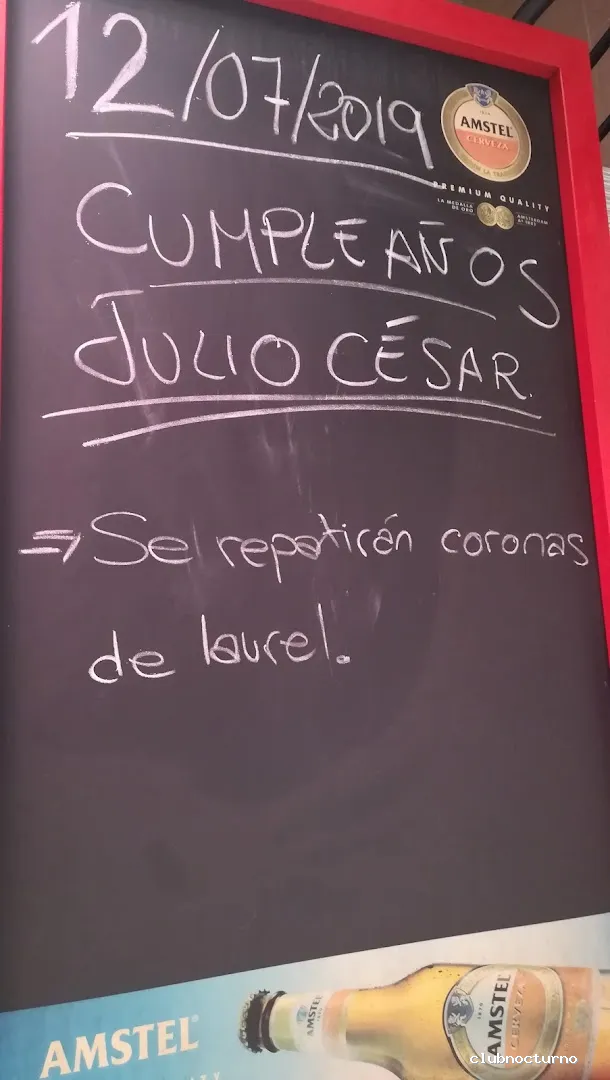 12/07/2019
AMSTEL
CERVEZA
PREMIUM QUALITY
LA MEDALLA DE ORO
AMSTERDAM
CUMPLEAÑOS
JULIO CÉSAR
⇒ Se repatirán coronas
de laurel.
AMSTEL
1870
AMSTEL
CERVEZA
AMSTEL
clubnocturno